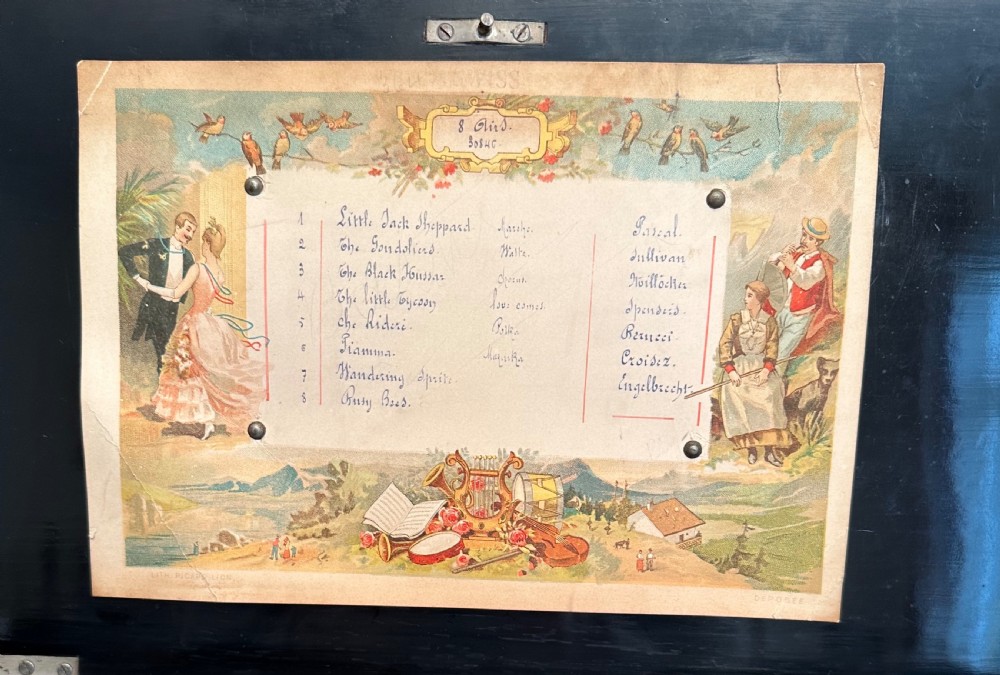 8 Airs.
30840.
1 Little Jack Sheppard Marche. Pascal.
2 The Gondoliers Waltz. Sullivan
3 The Black Hussar Chorus. Millöcker
4 The little Tycoon Love comes. Spenserd.
5 che Rideré. Polka Perucci
6 Fiamma. Mazurka Croisez.
7 Wandering Sprite. Engelbrecht
8 Busy Bees.
DÉPOSÉE